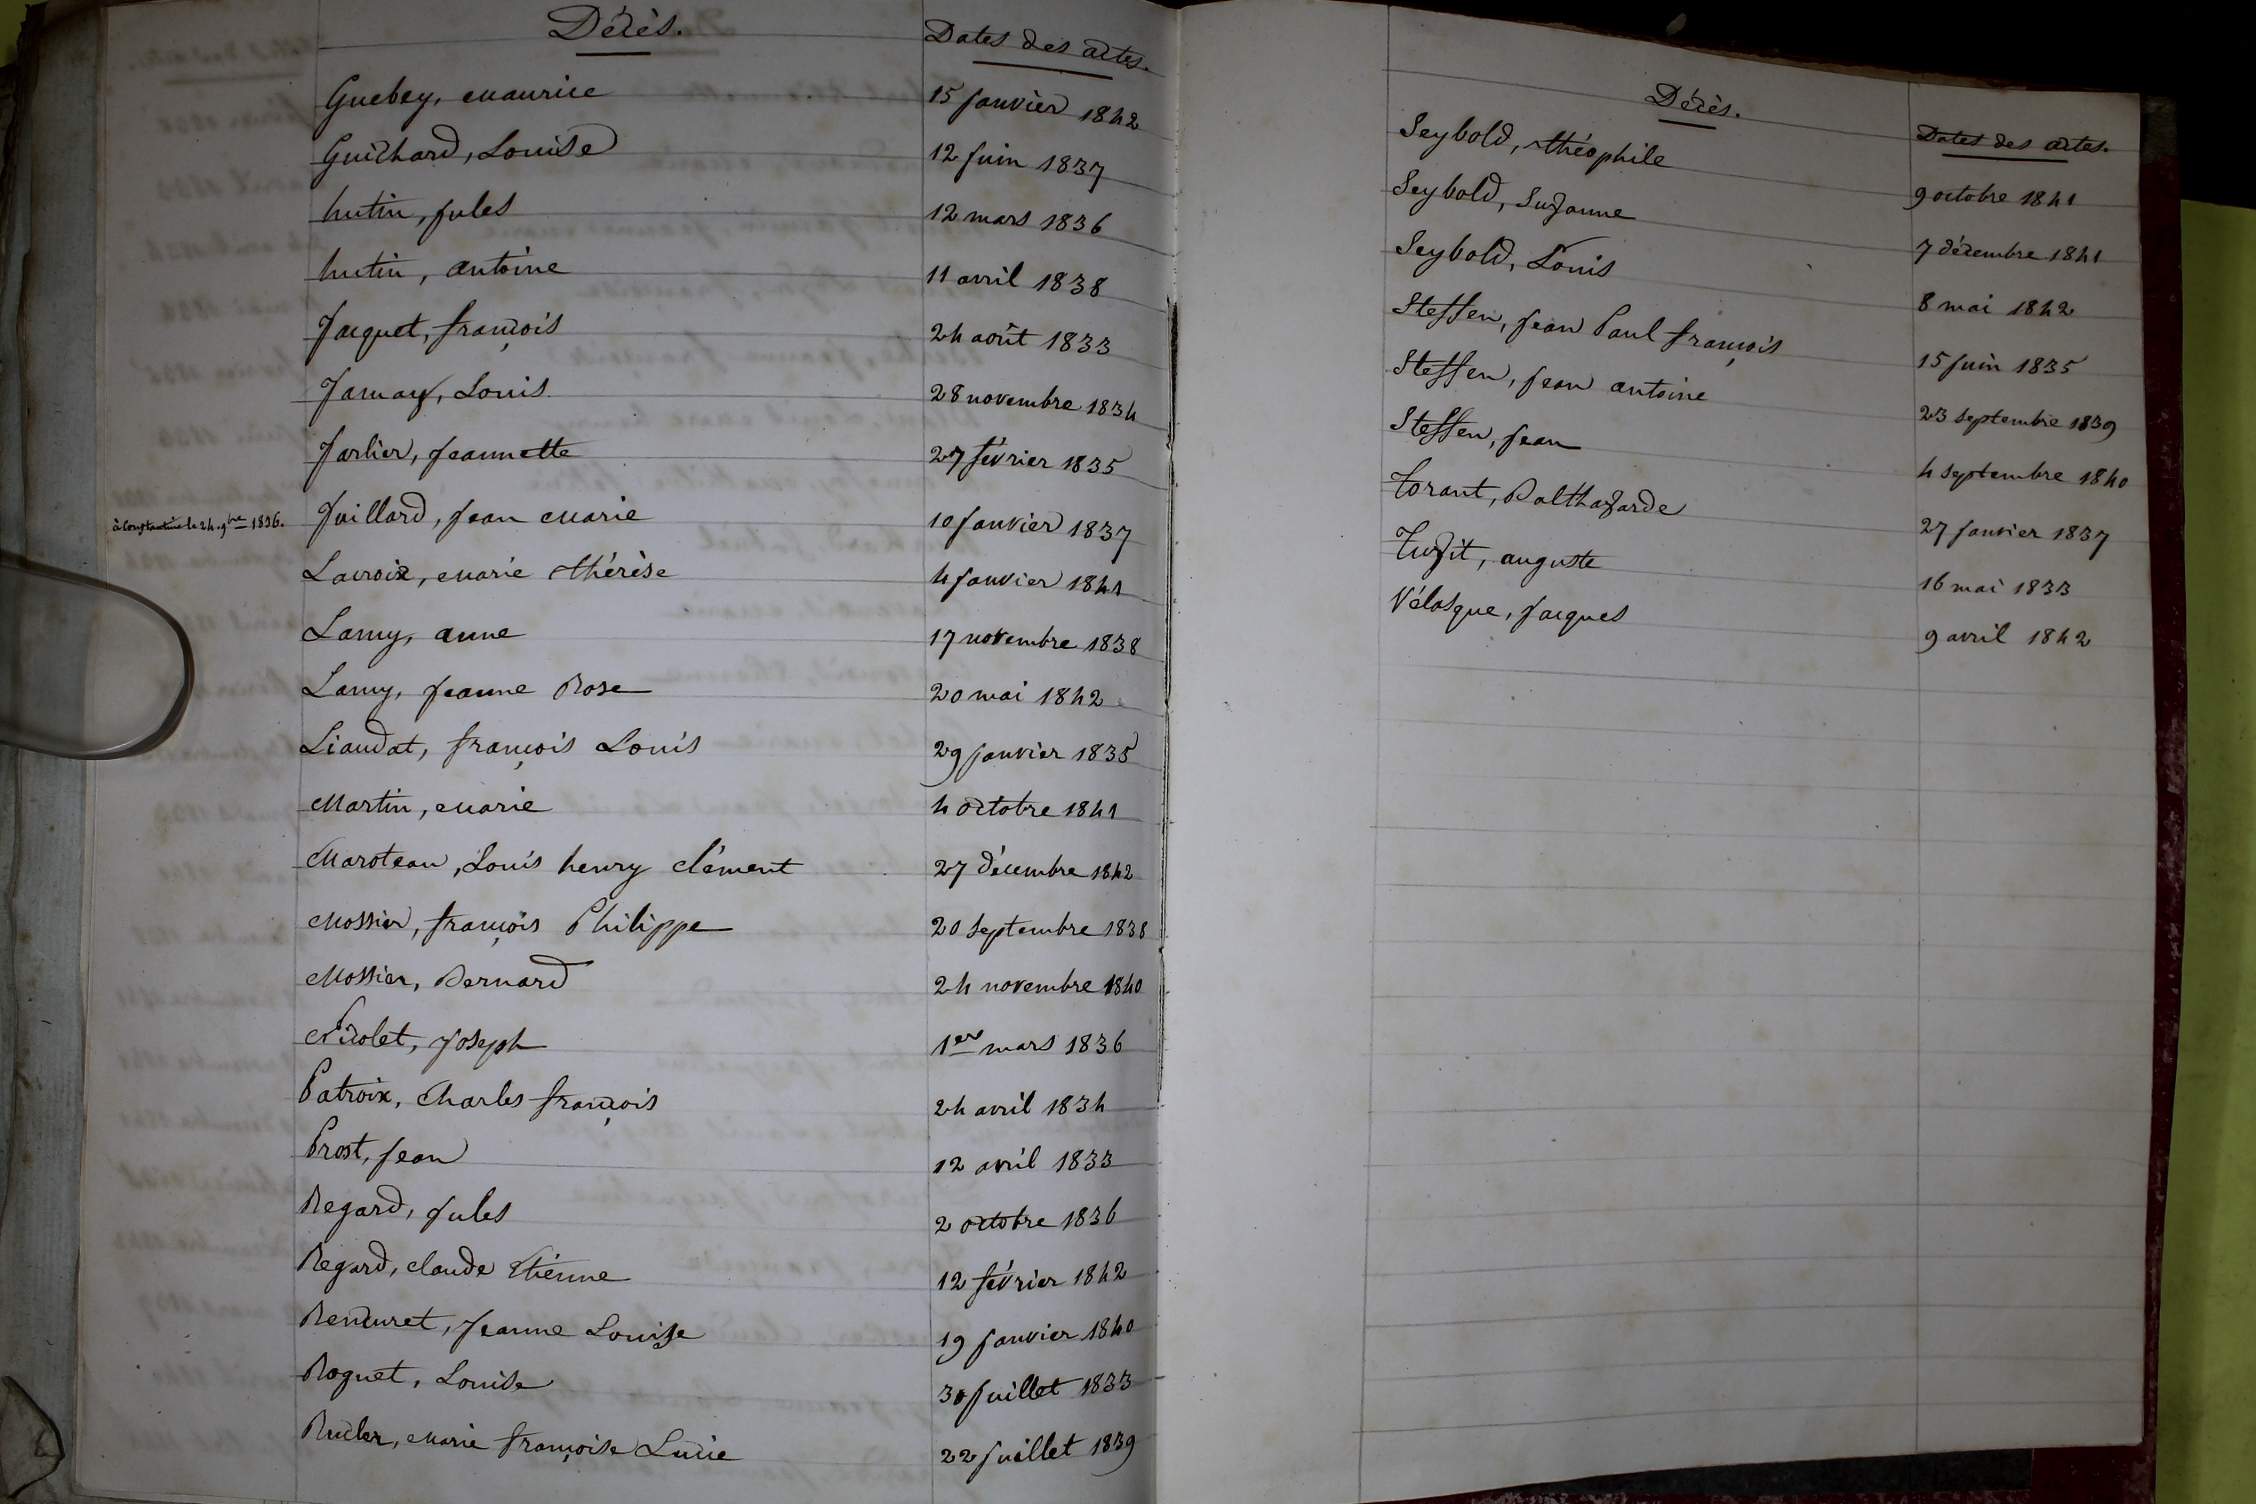 Décès. Dates des actes.
Guebey, Maurice 15 janvier 1842
Guichard, Louise 12 juin 1837
hutin, jules 12 mars 1836
hutin, antoine 11 avril 1838
Jacquet, françois 24 août 1833
Jamay, Louis. 28 novembre 1834
Jarlier, Jeannette 27 février 1835
à Constantine le 24 9bre 1836. Juillard, Jean Marie 10 janvier 1837
Lacroix, Marie thérèse 4 janvier 1841
Lamy, anne 17 novembre 1838
Lamy, Jeanne Rose 20 mai 1842
Liaudat, françois Louis 29 janvier 1835
Martin, Marie 4 octobre 1841
Maroteau, Louis henry clément 27 décembre 1842
Mossier, françois Philippe 20 septembre 1838
Mossier, Bernard 24 novembre 1840
Nicolet, Joseph 1er mars 1836
Patroix, Charles françois 24 avril 1834
Prost, Jean 12 avril 1833
Regard, jules 2 octobre 1836
Regard, claude Etienne 12 février 1842
Renduret, Jeanne Louise 19 janvier 1840
Roguet, Louise 30 juillet 1833
Rudler, Marie françoise Lucie 22 juillet 1839
Décès. Dates des actes.
Seybold, théophile 9 octobre 1841
Seybold, Suzanne 7 décembre 1841
Seybold, Louis 8 mai 1842
Steffen, Jean Paul françois 15 juin 1835
Steffen, Jean antoine 23 septembre 1839
Steffen, Jean 4 septembre 1840
Torant, Balthazarde 27 janvier 1837
Tuzit, auguste 16 mai 1833
Vélasque, Jacques 9 avril 1842